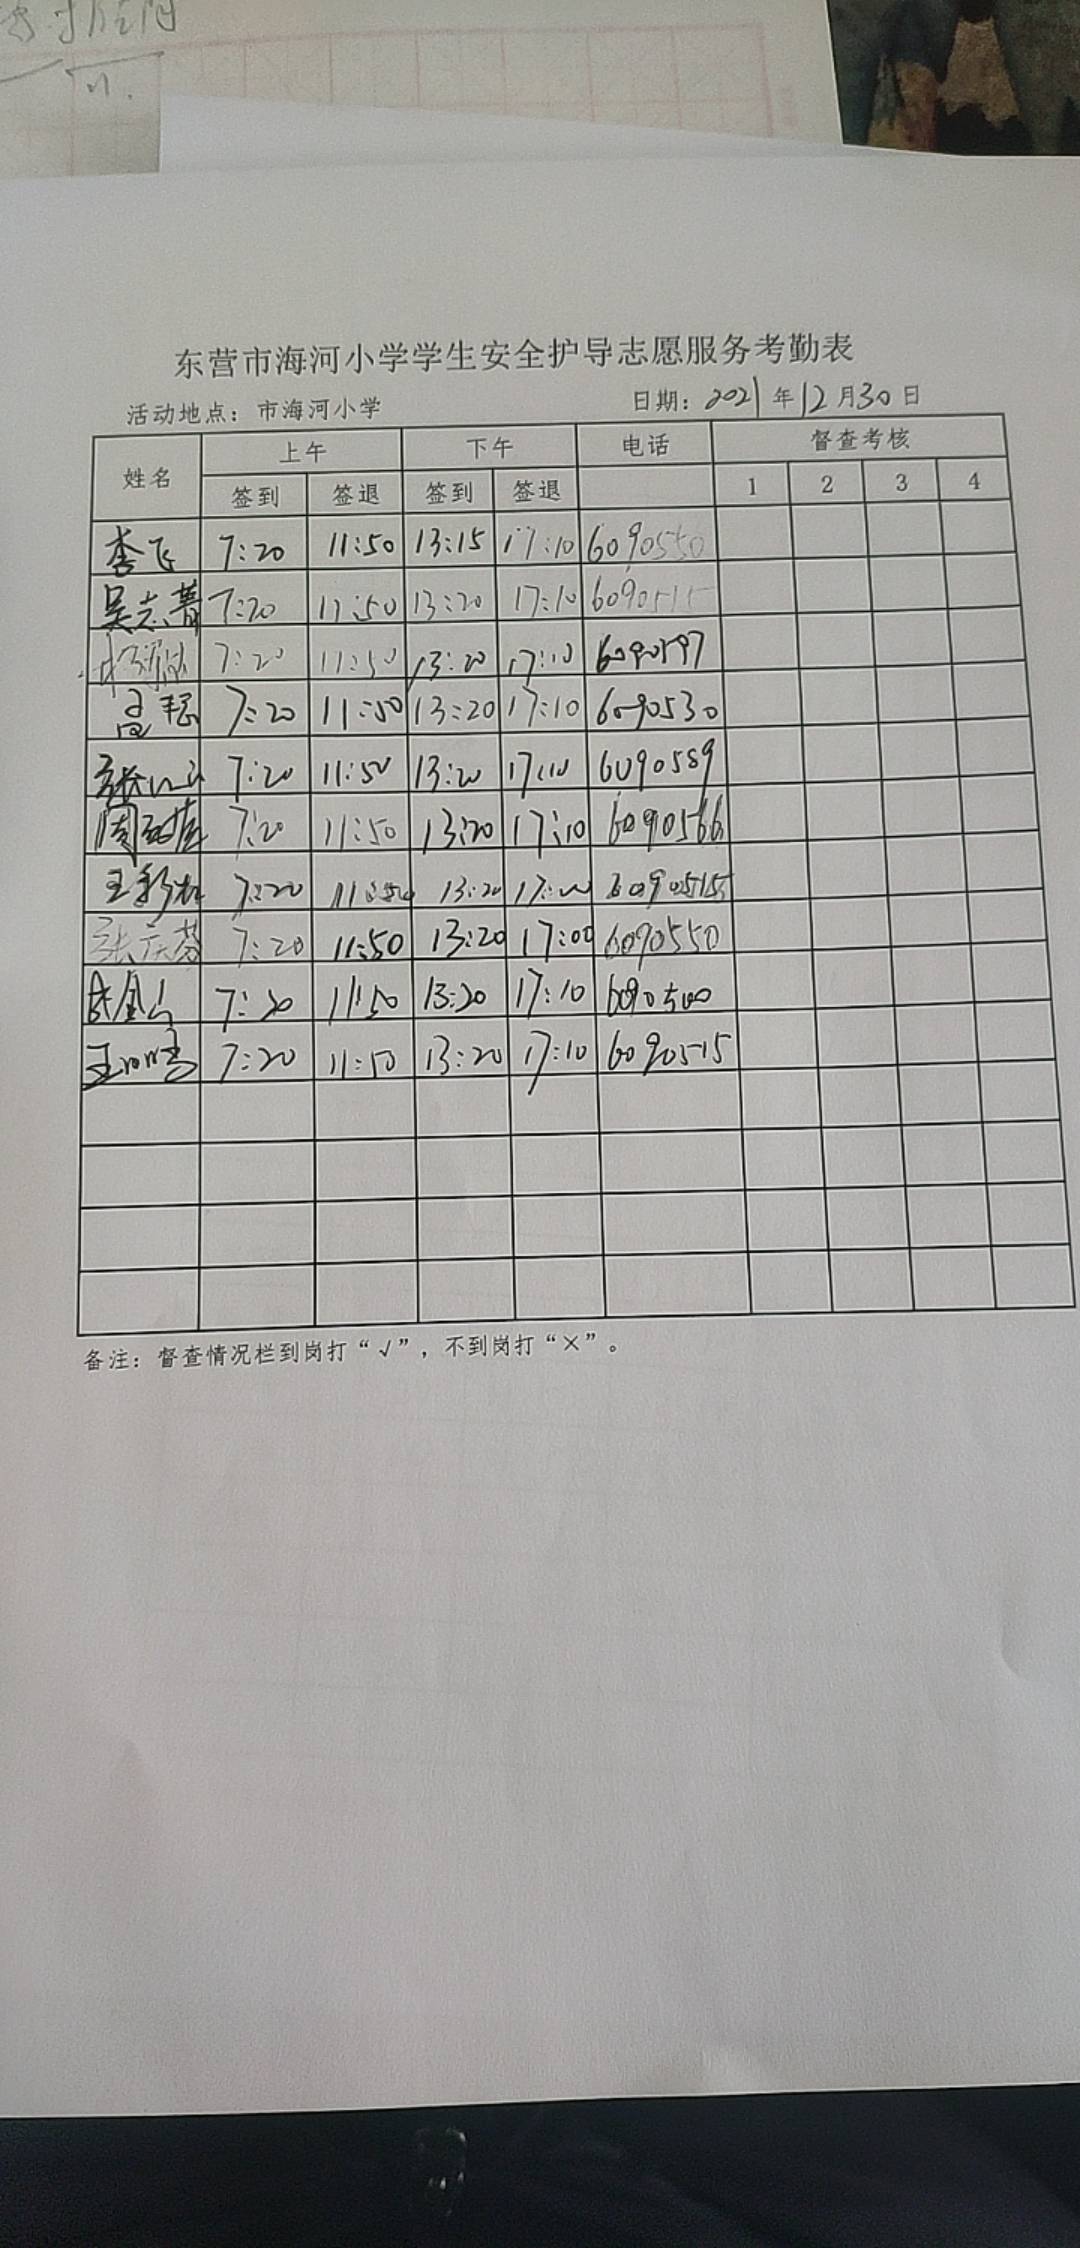 东营市海河小学学生安全护导志愿服务考勤表
活动地点：市海河小学 日期：2021年12月30日
姓名 上午 下午 电话 督查考核
签到 签退 签到 签退 1 2 3 4
李飞 7:20 11:50 13:15 17:10 6090550
吴志菁 7:20 11:50 13:20 17:10 6090515
7:20 11:50 13:20 17:10 6090597
孟聪 7:20 11:50 13:20 17:10 6090530
7:20 11:50 13:20 17:10 6090589
周 7:20 11:50 13:20 17:10 6090566
王 7:20 11:50 13:20 17:00 6090515
张庆芬 7:20 11:50 13:20 17:00 6090550
7:20 11:50 13:20 17:10 6090500
王 7:20 11:50 13:20 17:10 6090515
备注：督查情况栏到岗打“√”，不到岗打“×”。